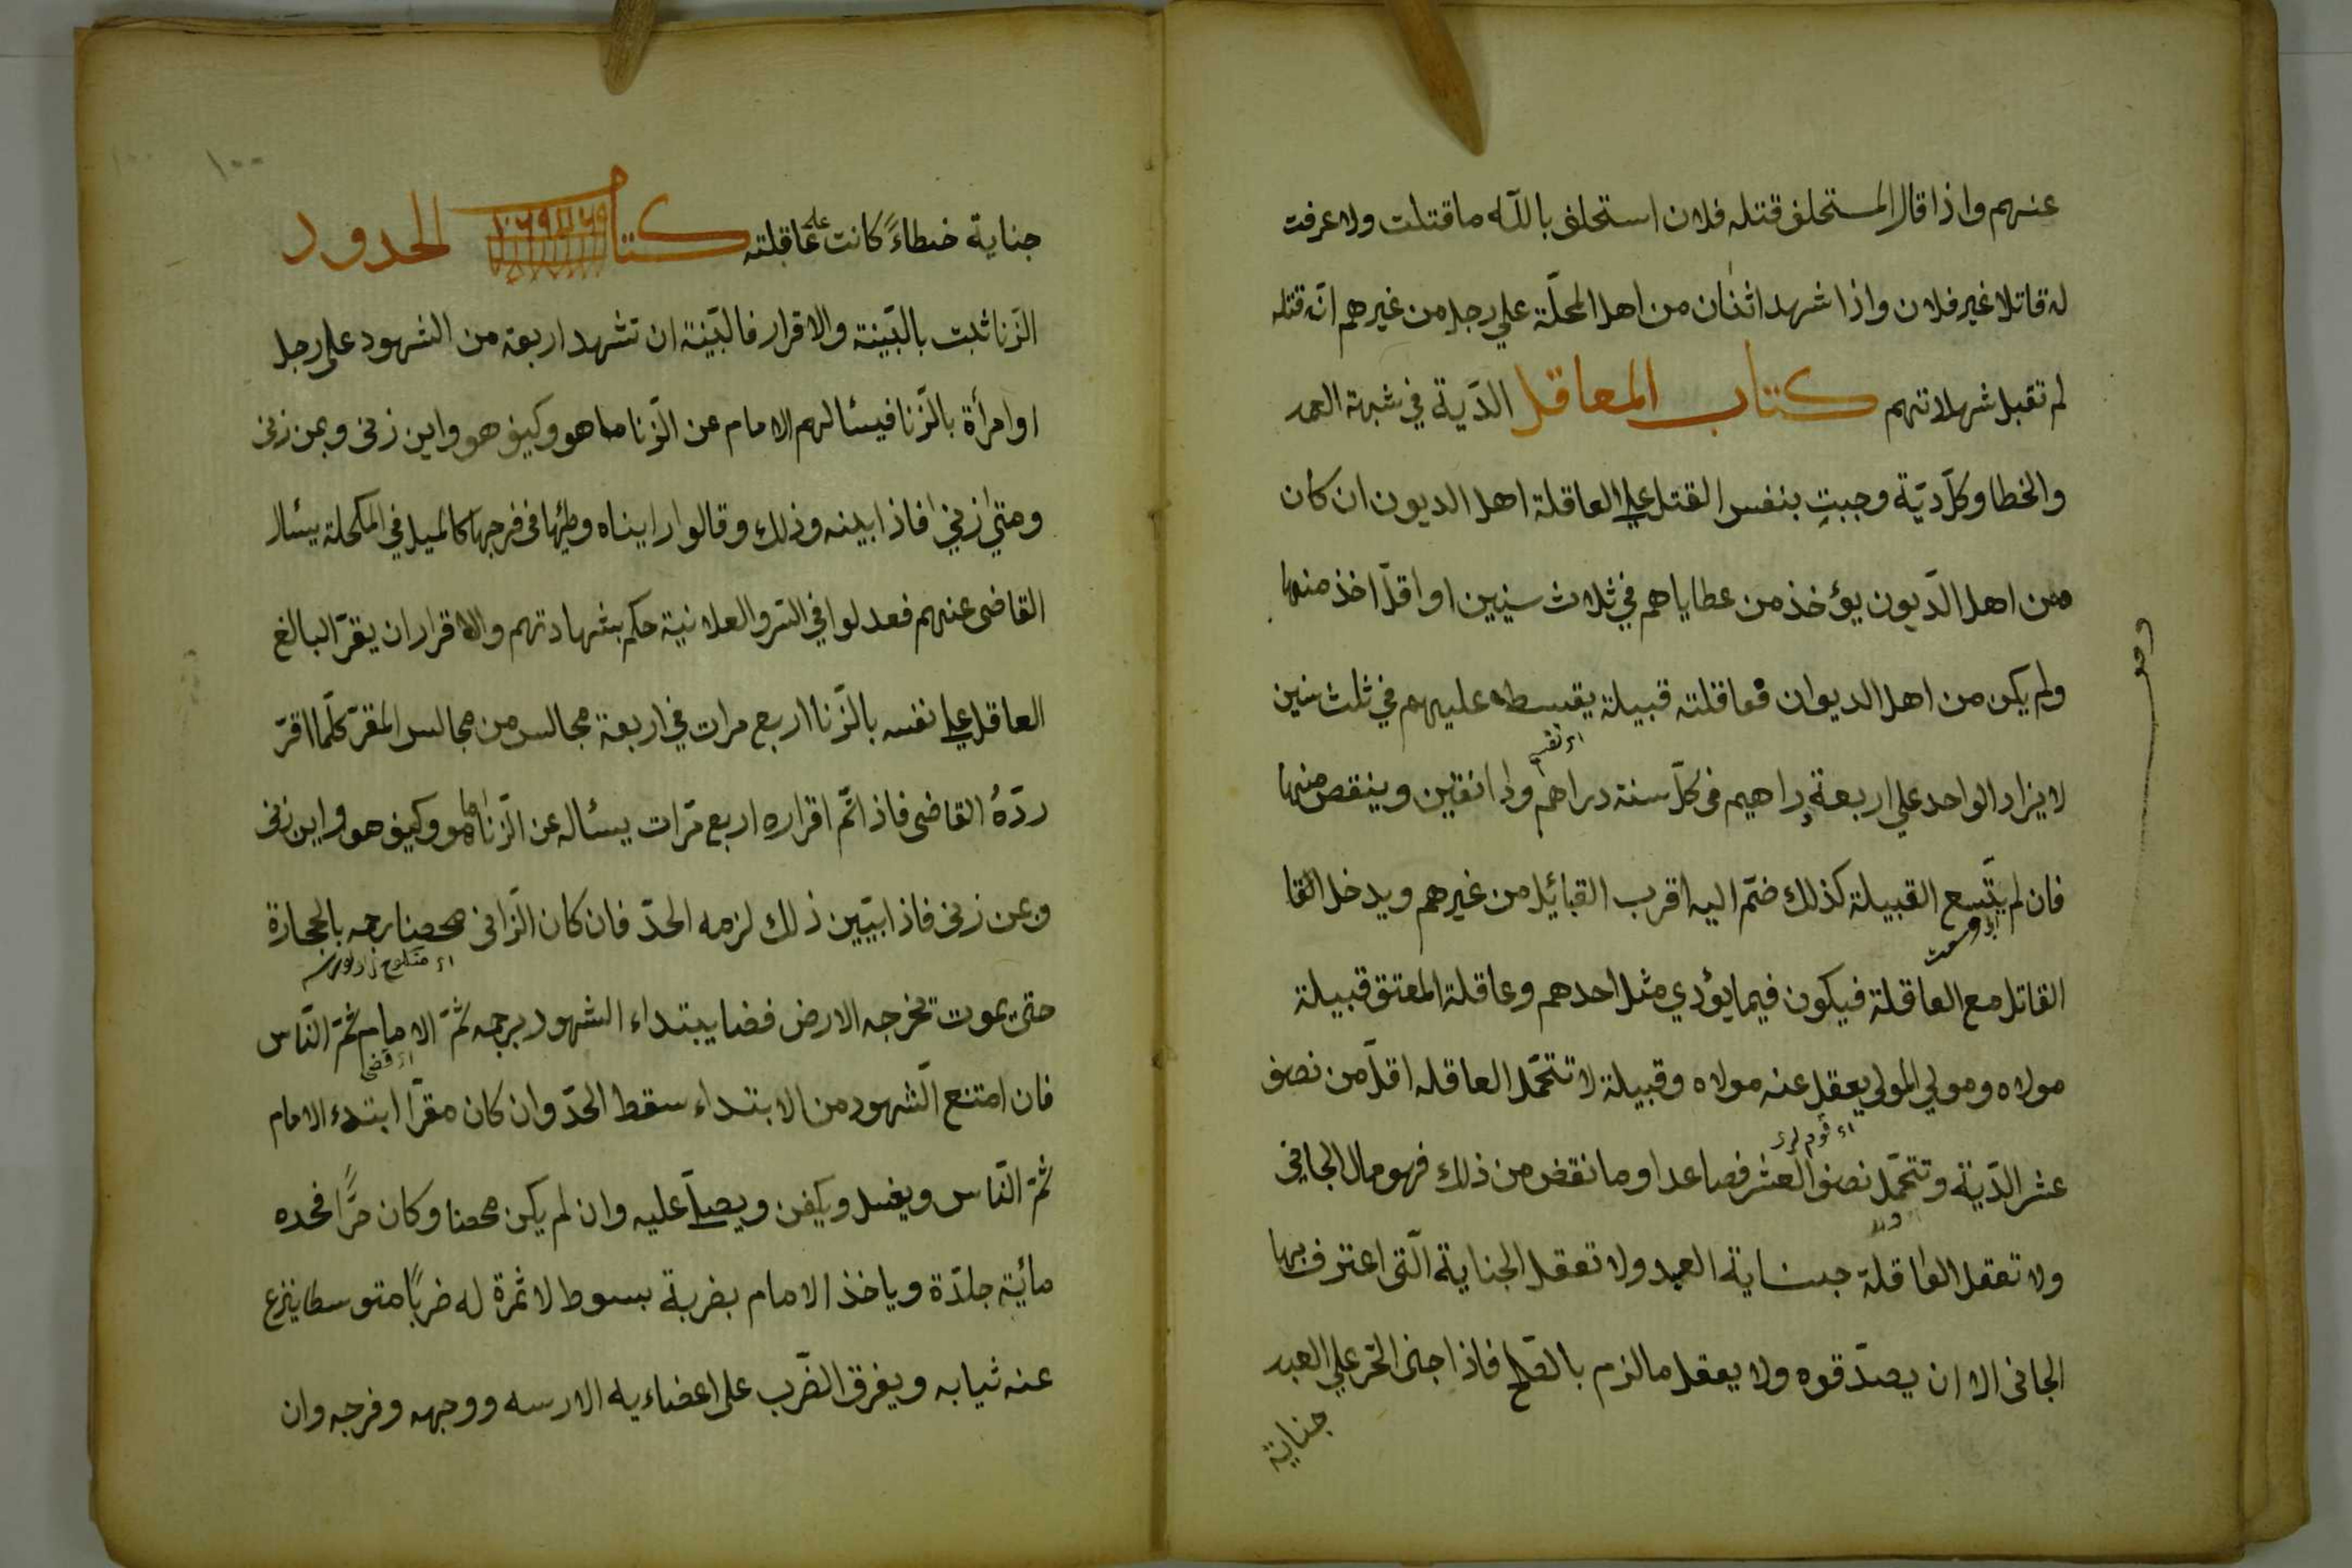 عنهم واذا قال المستحلف قتله فلان استحلف بالله ما قتلت ولا عرفت
له قاتلا غير فلان واذا شهد اثنان من اهل المحلّة علي رجل من غيرهم انّه قتله
لم تقبل شهلاتهم كتاب المعاقل الدّية في شبهة العمد
والخطا وكلّ ديّة وجبت بنفس القتل علي العاقلة اهل الديون ان كان
من اهل الدّيون يؤخذ من عطاياهم في ثلاث سنيين او اقلّ اخذ منها
ولم يكن من اهل الديوان فعاقلته قبيلة يقسطه عليهم في ثلث سنين
لا يزاد الواحد علي اربعة دراهيم فى كلّ سنة دراهم ودانقين وينقص منها
فان لم يتّسع القبيلة كذلك ضمّ اليه اقرب القبائيل من غيرهم ويدخل القا
القاتل مع العاقلة فيكون فيما يؤدي مثل احدهم وعاقلة المعتق قبيلة
مولاه ومولي المولي يعقل عنه مولاه وقبيلة لا تتحمّل العاقله اقلّ من نصف
عشر الدّية وتتحمّل نصف العشر فصاعدا وما نقض من ذلك فهو مال الجافى
ولا تعقل العاقلة جناية العبد ولا تعقل الجناية الّتى اعترف بها
الجانى الا ان يصدّقوه ولا يعقل ما لزم بالصّلح فاذا جنى الحّر علي العبد
جناية
١٠٠
جناية خطاءً كانت علي عاقلته كتاب الحدود
الزّنا ثبت بالبّينة والاقرار فالبّينة ان تشهد اربعة من الشهود على رجل
او امرأة بالزّنا فيسئالهم الامام عن الزّنا ما هو وكيف هو واين زنى وبمن زنى
ومتىٰ زنيٰ فاذا بينه وذلك وقالوا رايناه وطئها فى فرجها كالميل في المكحلة يسئال
القاضى عنهم فعدلوا في السّر والعلانية حكم بشهادتهم والاقرار ان يقرّ البالغ
العاقل علي نفسه بالزّنا اربع مرات في اربعة مجالس من مجالس المقرّ كلّما اقرّ
ردّهُ القاضى فاذا تّم اقراره اربع مّرات يسئاله عن الزّنا ما هو وكيف هو واين زنى
وبمن زنى فاذا بيّين ذلك لزمه الحدّ فان كان الزّانى محصنا رجمه بالحجارة
حتى يموت يخرجه الارض فضا يبتداء الشهود برجمه ثمّ الامام ثمّ النّاس
فان امتنع الّشهود من الابتداء سقط الحدّ وان كان مقرّا ابتدء الامام
ثمّ النّاس ويغسل ويكفن ويصلّي عليه وان لم يكن محصنا وكان حرًّا فحده
مائية جلدّة وياخذ الامام بضربة بسوط لا ثمرة له ضربًا متوسطا ينزع
عنه ثيابه ويفرق الضّرب على اعضاءيه الا رسه ووجهه وفرجه وان